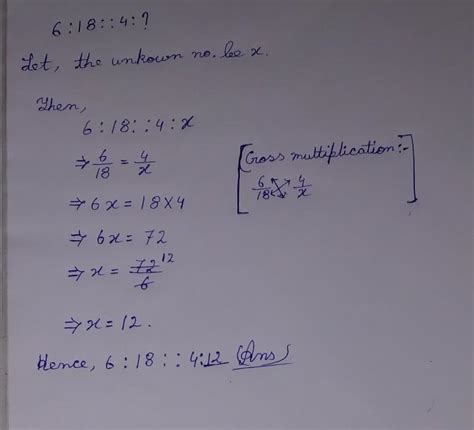 6:18::4:?
Let, the unkown no. be x.
Then,
6:18::4:x
⇒ 6/18 = 4/x
[Cross multiplication:-
6/18 4/x]
⇒ 6x = 18×4
⇒ 6x = 72
⇒ x = 72/6 12
⇒ x = 12.
Hence, 6:18::4:12 (Ans)